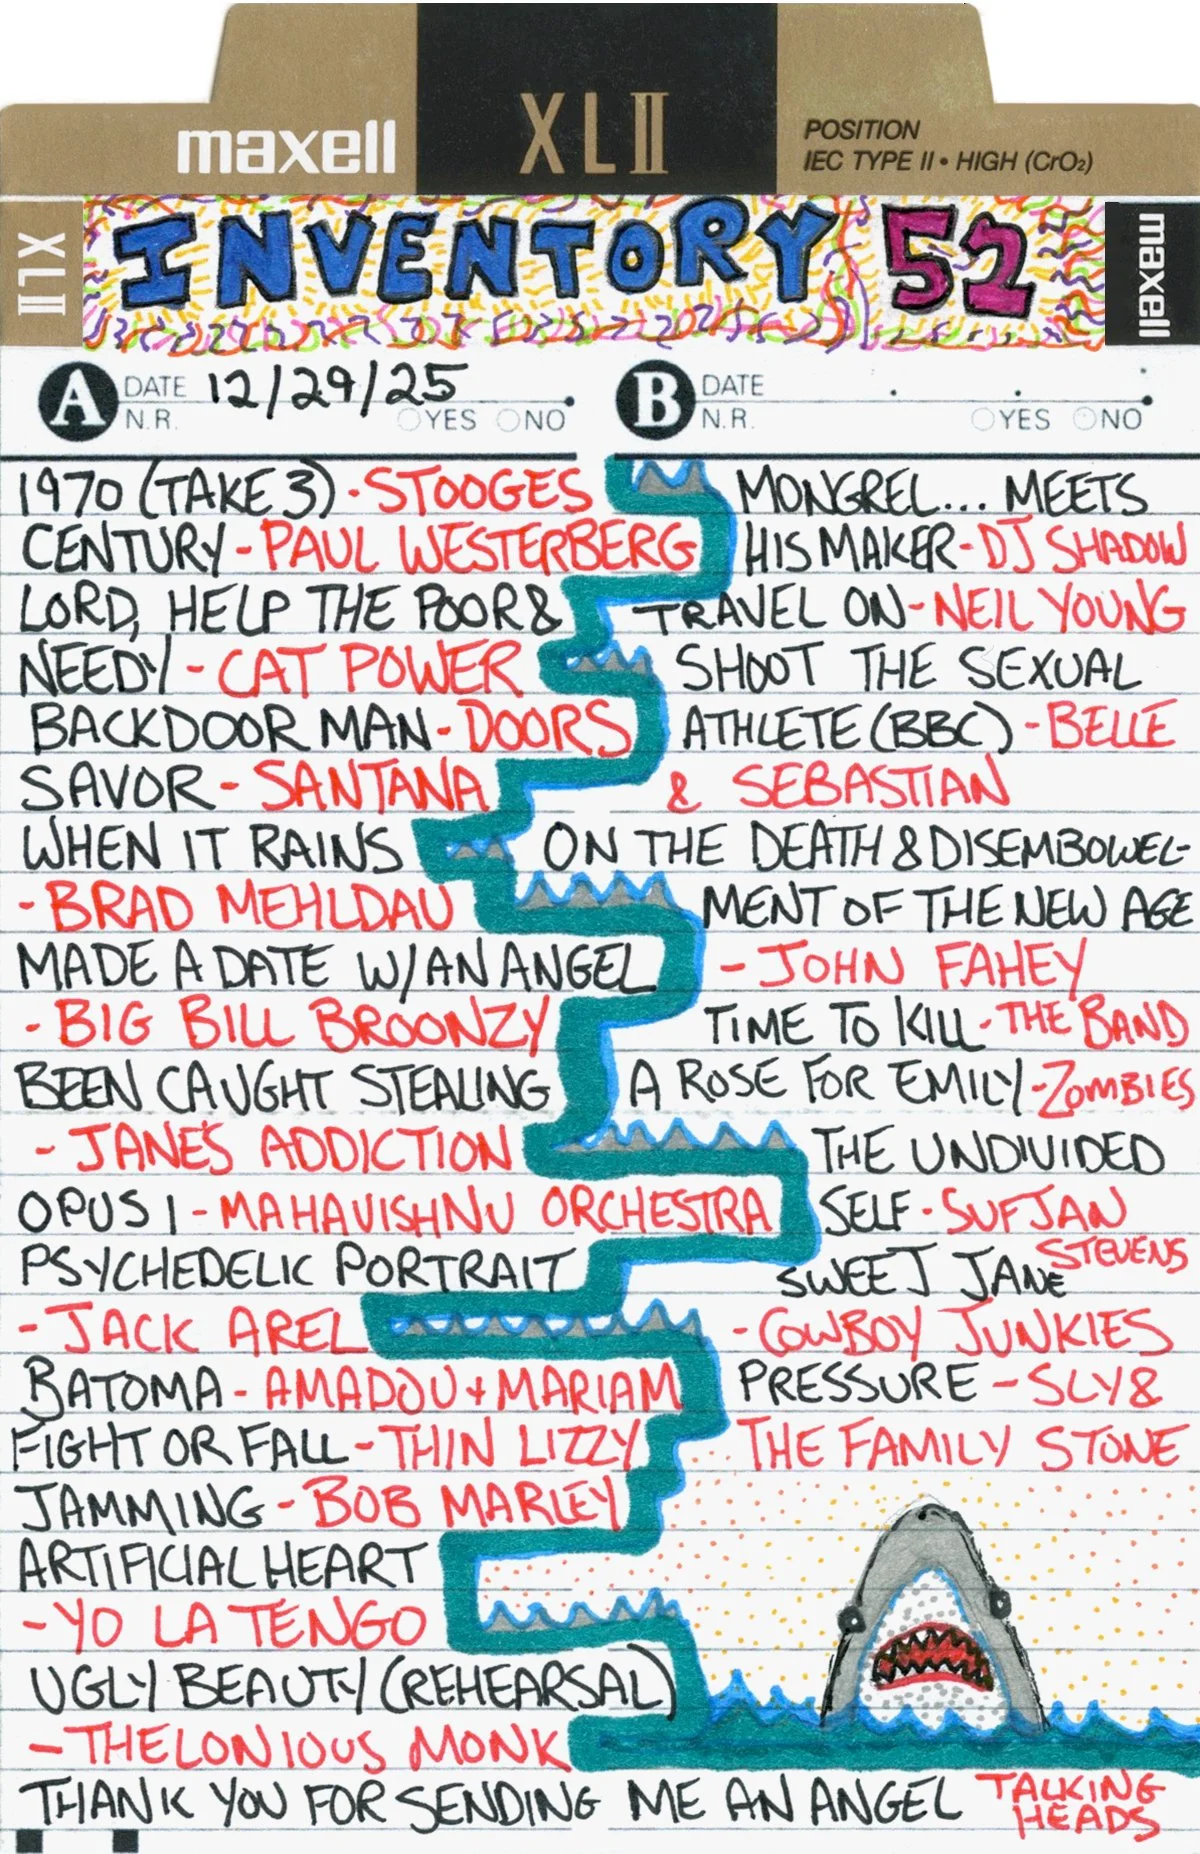 maxell
XLII
POSITION
IEC TYPE II • HIGH (CrO₂)
XLII
INVENTORY 52
maxell
A DATE 12/29/25
N.R. YES NO
B DATE
N.R. YES NO
1970 (TAKE 3) - STOOGES
CENTURY - PAUL WESTERBERG
LORD, HELP THE POOR &
NEEDY - CAT POWER
BACKDOOR MAN - DOORS
SAVOR - SANTANA
WHEN IT RAINS
- BRAD MEHLDAU
MADE A DATE W/AN ANGEL
- BIG BILL BROONZY
BEEN CAUGHT STEALING
- JANE'S ADDICTION
OPUS 1 - MAHAVISHNU ORCHESTRA
PSYCHEDELIC PORTRAIT
- JACK AREL
BATOMA - AMADOU + MARIAM
FIGHT OR FALL - THIN LIZZY
JAMMING - BOB MARLEY
ARTIFICIAL HEART
- YO LA TENGO
UGLY BEAUTY (REHEARSAL)
- THELONIOUS MONK
THANK YOU FOR SENDING ME AN ANGEL TALKING
HEADS
MONGREL... MEETS
HIS MAKER - DJ SHADOW
TRAVEL ON - NEIL YOUNG
SHOOT THE SEXUAL
ATHLETE (BBC) - BELLE
& SEBASTIAN
ON THE DEATH & DISEMBOWEL-
MENT OF THE NEW AGE
- JOHN FAHEY
TIME TO KILL - THE BAND
A ROSE FOR EMILY - ZOMBIES
THE UNDIVIDED
SELF - SUFJAN
STEVENS
SWEET JANE
- COWBOY JUNKIES
PRESSURE - SLY &
THE FAMILY STONE